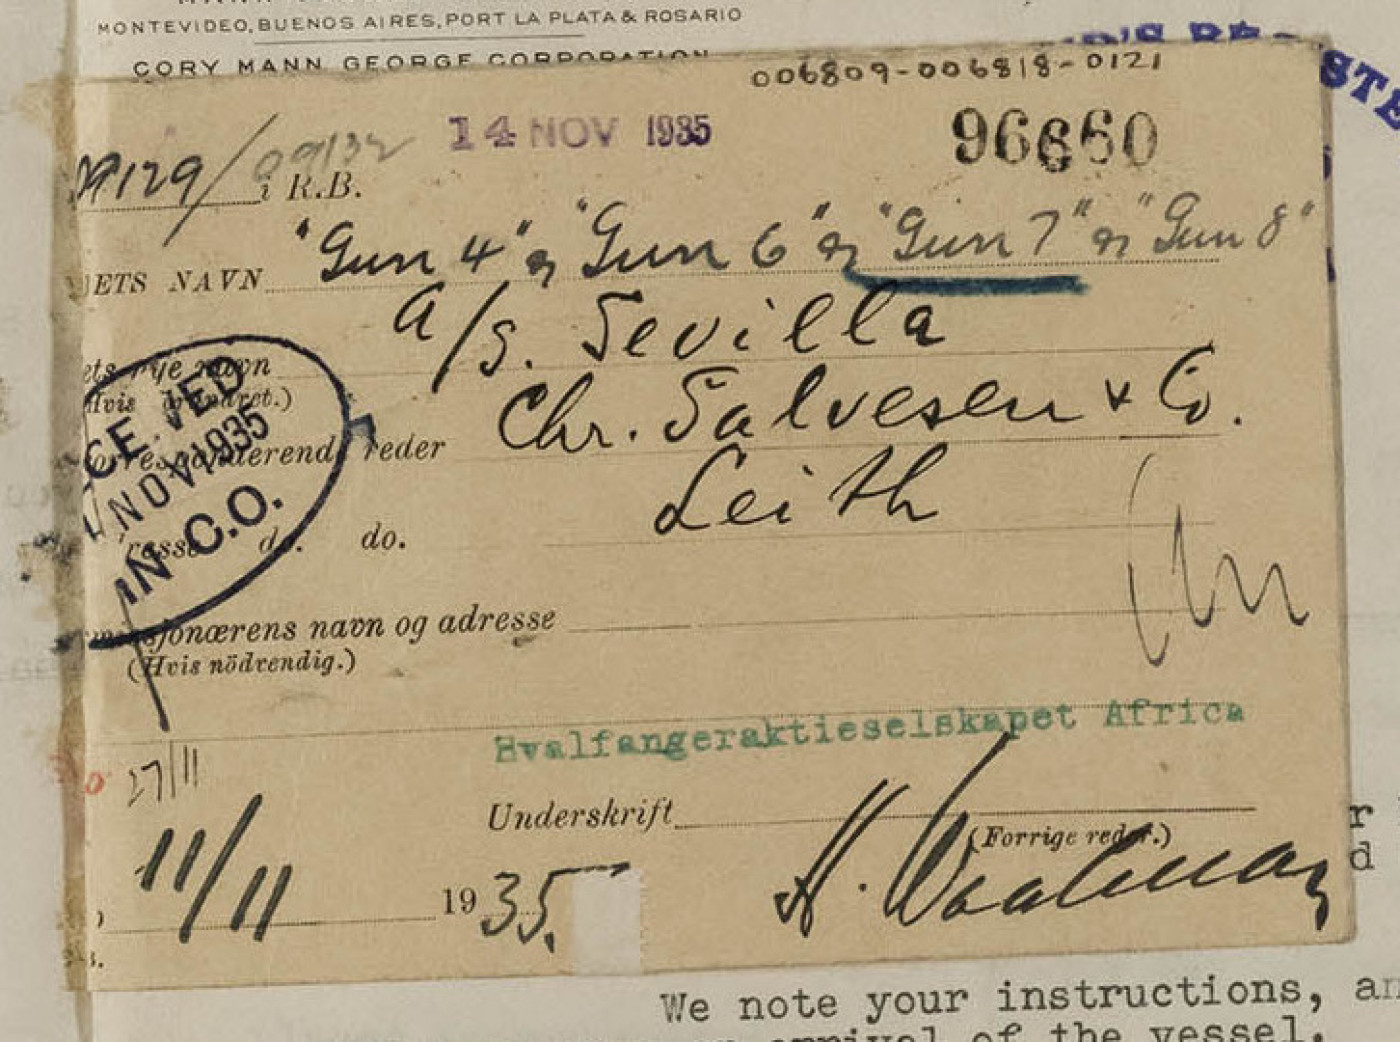 MONTEVIDEO, BUENOS AIRES, PORT LA PLATA & ROSARIO
CORY MANN GEORGE CORPORATION
006809-006818-0121
14 NOV 1935
96660
09129/09132 i R.B.
"Gun 4" og "Gun 6" og "Gun 7" og "Gun 8"
ETS NAVN
A/S. Sevilla
ets nye navn
(Hvis forandret.)
Chr. Salvesen & Co.
orresponderende reder
Leith
do. do.
NOV 1935
IN C.O.
sjonærens navn og adresse
(Hvis nödvendig.)
Hvalfangeraktieselskapet Africa
27/11
Underskrift
(Forrige reder.)
11/11 1935.
We note your instructions, an
arrival of the vessel.